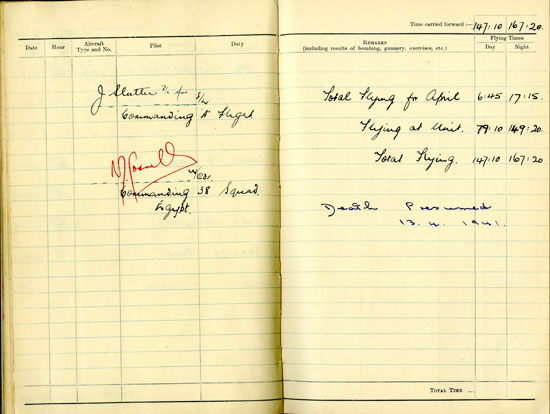 Time carried forward :— 147:10 167:20.
Date Hour Aircraft Type and No. Pilot Duty
Remarks
(including results of bombing, gunnery, exercises, etc.)
Flying Times
Day Night
J Slatter
S/Ldr
Commanding "A" Flight
W/Cdr.
Commanding 38 Squad.
Egypt.
Total Flying for April 6:45 17:15.
Flying at Unit. 79:10 149:20.
Total Flying. 147:10 167:20
Death Presumed
13. 4. 1941.
Total Time ...